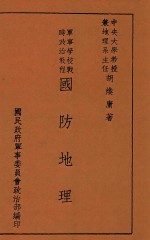 中央大學教授
兼地理系主任
胡煥庸著
軍事學校戰
時政治教程
國防地理
國民政府軍事委員會政治部編印